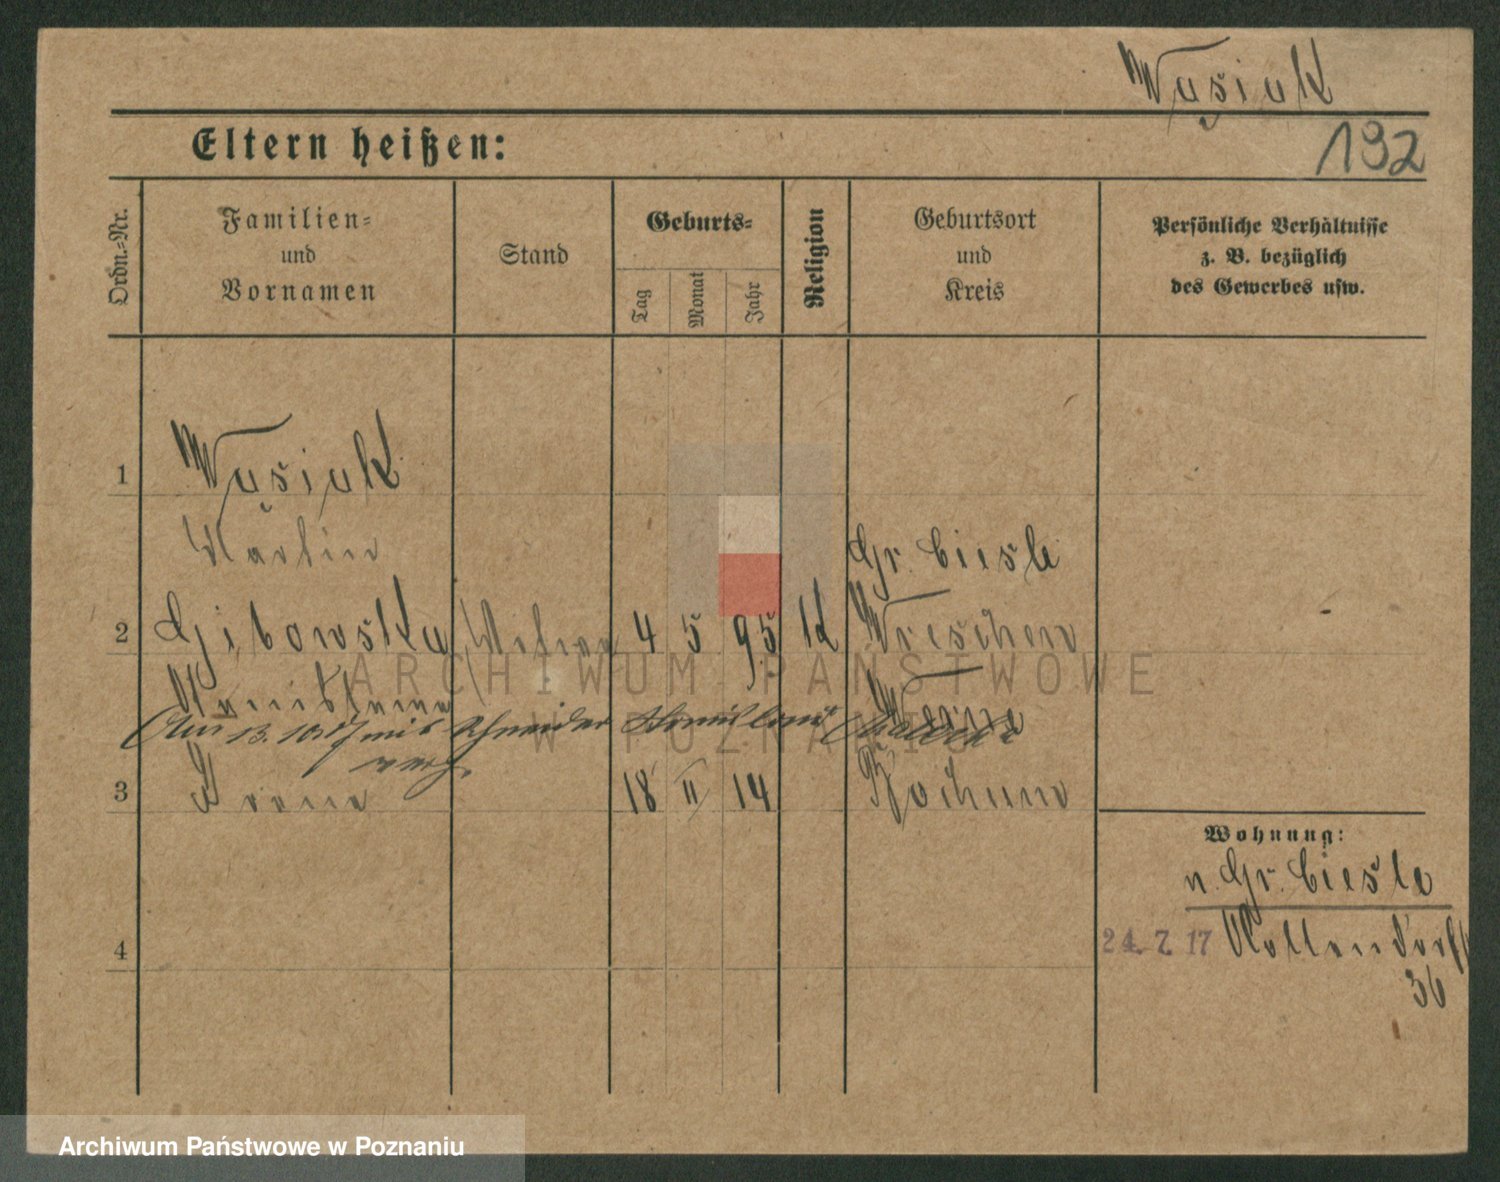 Wąsiak
Eltern heißen:
192
Ordn.-Nr.
Familien-
und
Vornamen
Stand
Geburts-
Tag
Monat
Jahr
Religion
Geburtsort
und
Kreis
Persönliche Verhältnisse
z. B. bezüglich
des Gewerbes usw.
1
Wąsiak
Martin
Gr. Ciesle
2
Gibowska
Witwe
4 5 95
K
Wreschen
Stanislawa
Am 13. 10. 17 mit Schneider Stanislaus
verh.
3
Irena
18 II 14
Bochum
Wohnung:
n. Gr. Ciesle
24. 7. 17
36
4
ARCHIWUM PAŃSTWOWE
W POZNANIU
Archiwum Państwowe w Poznaniu